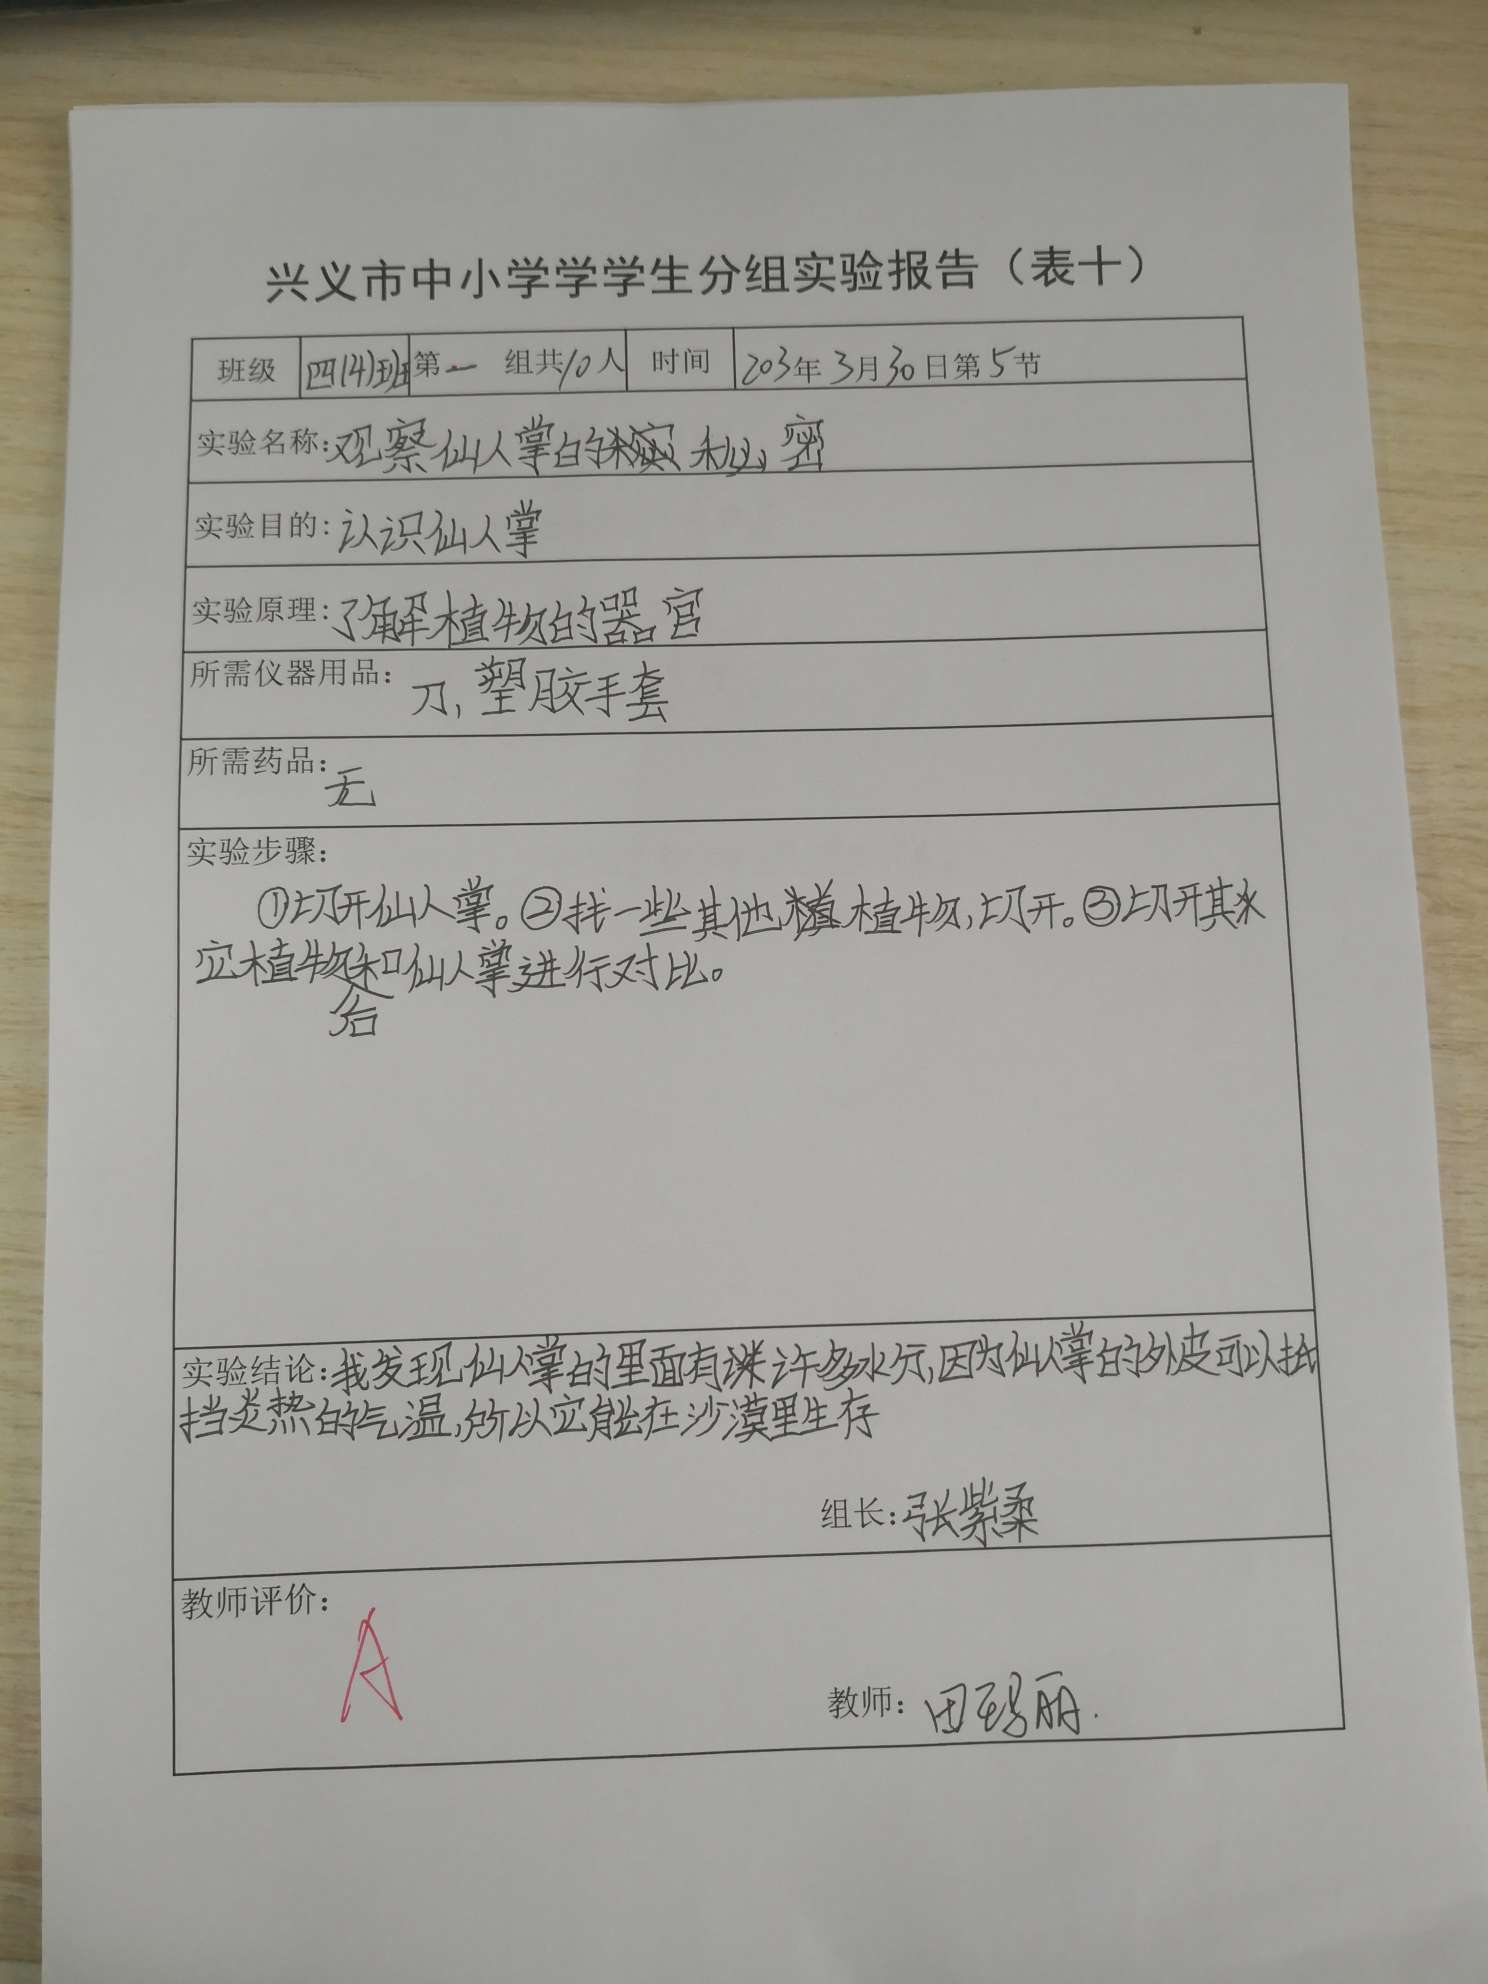 兴义市中小学学学生分组实验报告（表十）
班级 四(4)班 第一 组共10人 时间 203年3月30日第5节
实验名称:观察仙人掌的 秘密
实验目的:认识仙人掌
实验原理:了解植物的器官
所需仪器用品: 刀,塑胶手套
所需药品:无
实验步骤:
①切开仙人掌。②找一些其他 植物,切开。③切开其
它植物和仙人掌进行对比。
合
实验结论:我发现仙人掌的里面有 许多水分,因为仙人掌的外皮可以抵
挡炎热的气温,所以它能在沙漠里生存
组长:张紫柔
教师评价:
A
教师: 田 丽.